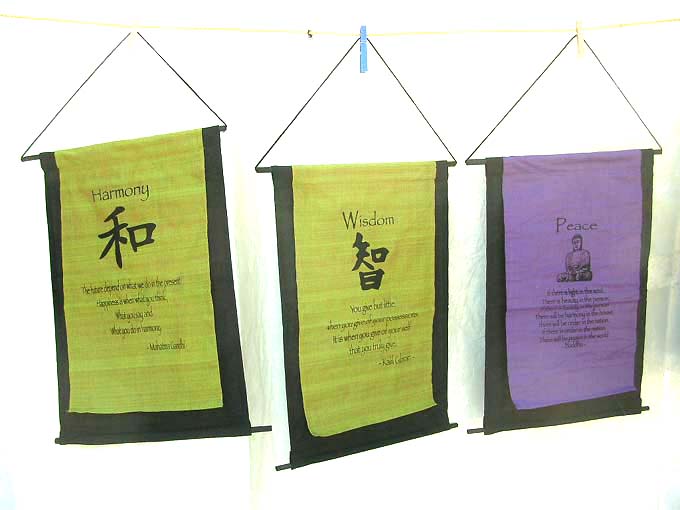 Harmony
和
The future depend on what we do in the present!
Happiness is when what you think,
What you say and
What you do in harmony.
- Mahatma Gandhi
Wisdom
智
You give but little,
when you give of your possessions
It is when you give of your self
that you truly give.
- Kalil Gibran -
Peace
If there is light in the soul,
There is beauty in the person.
There will be harmony in the house.
there will be order in the nation.
If there is order in the nation.
There will be peace in the world
Buddha -